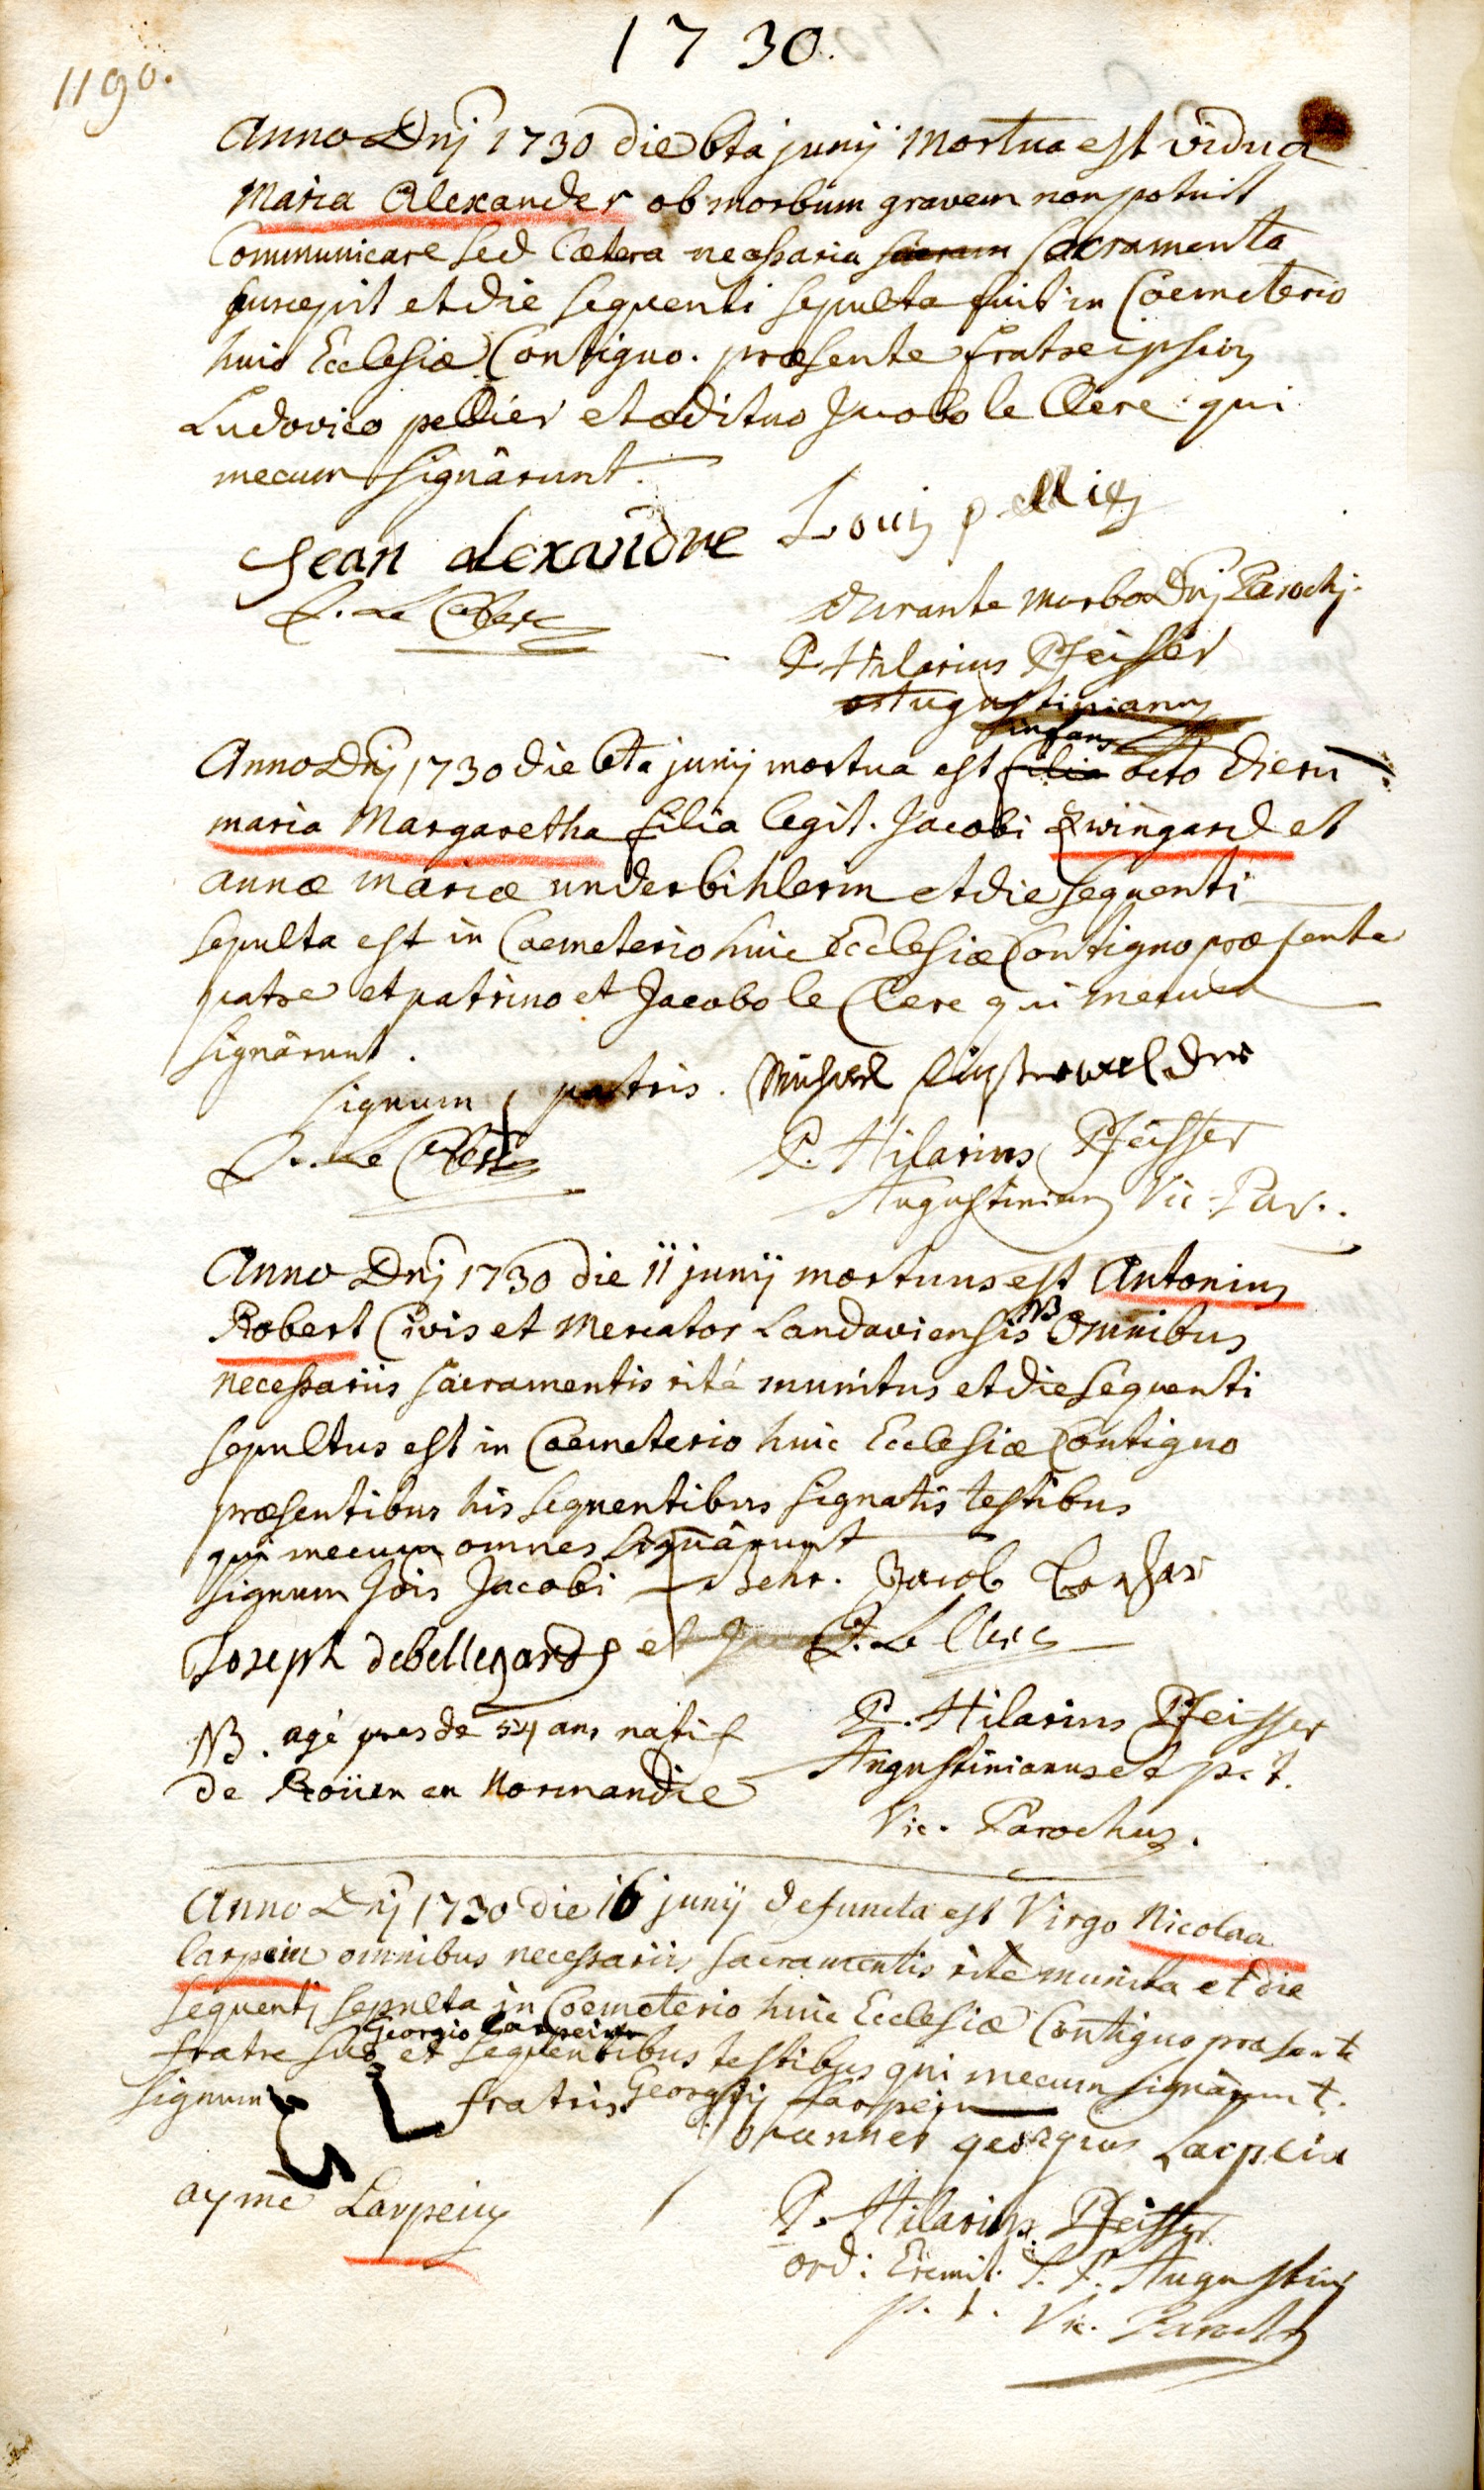 1730.
1190.
Anno Dnj 1730 die 6ta junij Mortua est vidua
Maria Alexander ob morbum gravem non potuit
Communicare sed Cætera necessaria sacram sacramenta
suscepit et die sequenti sepulta fuit in Cœmeterio
huic Ecclesiæ Contiguo. præsente fratre ipsius
Ludovico pellier et ædituo Jacobo le Clere qui
mecum signârunt.
Jean alexandre Louis
J. Le Clerc
durante morbo Dnj Parochj.
P. Hilarius Pfeiffer
Augustinianus
infans
Anno Dnj 1730 die 6ta junij mortua est filia octo dierū
maria Margaretha filia legit. Jacobi Zwingard et
annæ mariæ underbihlerin et die sequenti
sepulta est in Cœmeterio huic Ecclesiæ Contiguo præsente
patre et patrino et Jacobo le Clere qui mecum
signârunt.
signum patris. Michael
J. Le Clerc
P. Hilarius Pfeiffer
Augustinianus Vic. Par.
Anno Dnj 1730 die 11 junij mortuus est Antonius
Robert Civis et Mercator Landaviensis NB Omnibus
necessariis sacramentis ritè munitus et die sequenti
sepultus est in Cœmeterio huic Ecclesiæ Contiguo
præsentibus his sequentibus signatis testibus
qui mecum omnes signârunt
signum Jois Jacobi Behr. Jacob
Joseph debellegarde et J. Le Clerc
NB. agé pres de 54 ans natif
de Roüen en Normandie
P. Hilarius Pfeiffer
Augustinianus et p. t.
Vic. Parochus.
Anno Dnj 1730 die 16 junij defuncta est Virgo Nicolaa
Larpein omnibus necessariis sacramentis ritè munita et die
sequentj sepulta in Cœmeterio huic Ecclesiæ Contiguo præsente
Georgio Larpein
fratre suo et sequentibus testibus qui mecum signârunt.
signum G L fratris Georgij Larpein
Joannes georgius Larpein
aymé Larpein
P. Hilarius Pfeiffer
ord: Eremit. S. P. Augustinj
p. t. Vic. Paroch